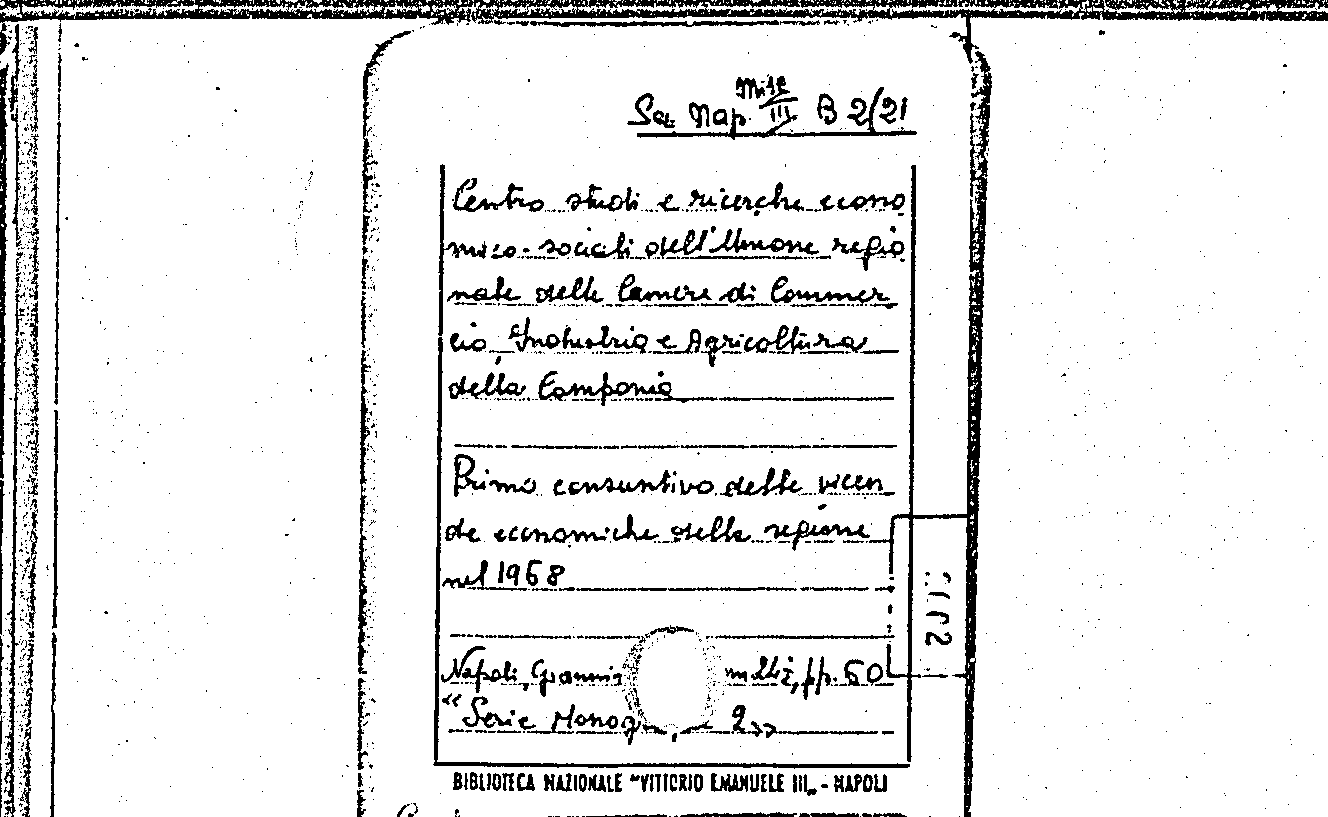 Sez. Nap. Misc III B 2/21
Centro studi e ricerche econo
mico-sociali dell'Unione regio
nale delle Camere di Commer
cio, Industria e Agricoltura
della Campania
Primo consuntivo delle vicen
de economiche della regione
nel 1968
Napoli, Giannin mltiż, pp. 60
"Serie Monog 2»
BIBLIOTECA NAZIONALE "VITTORIO EMANUELE III„ - NAPOLI